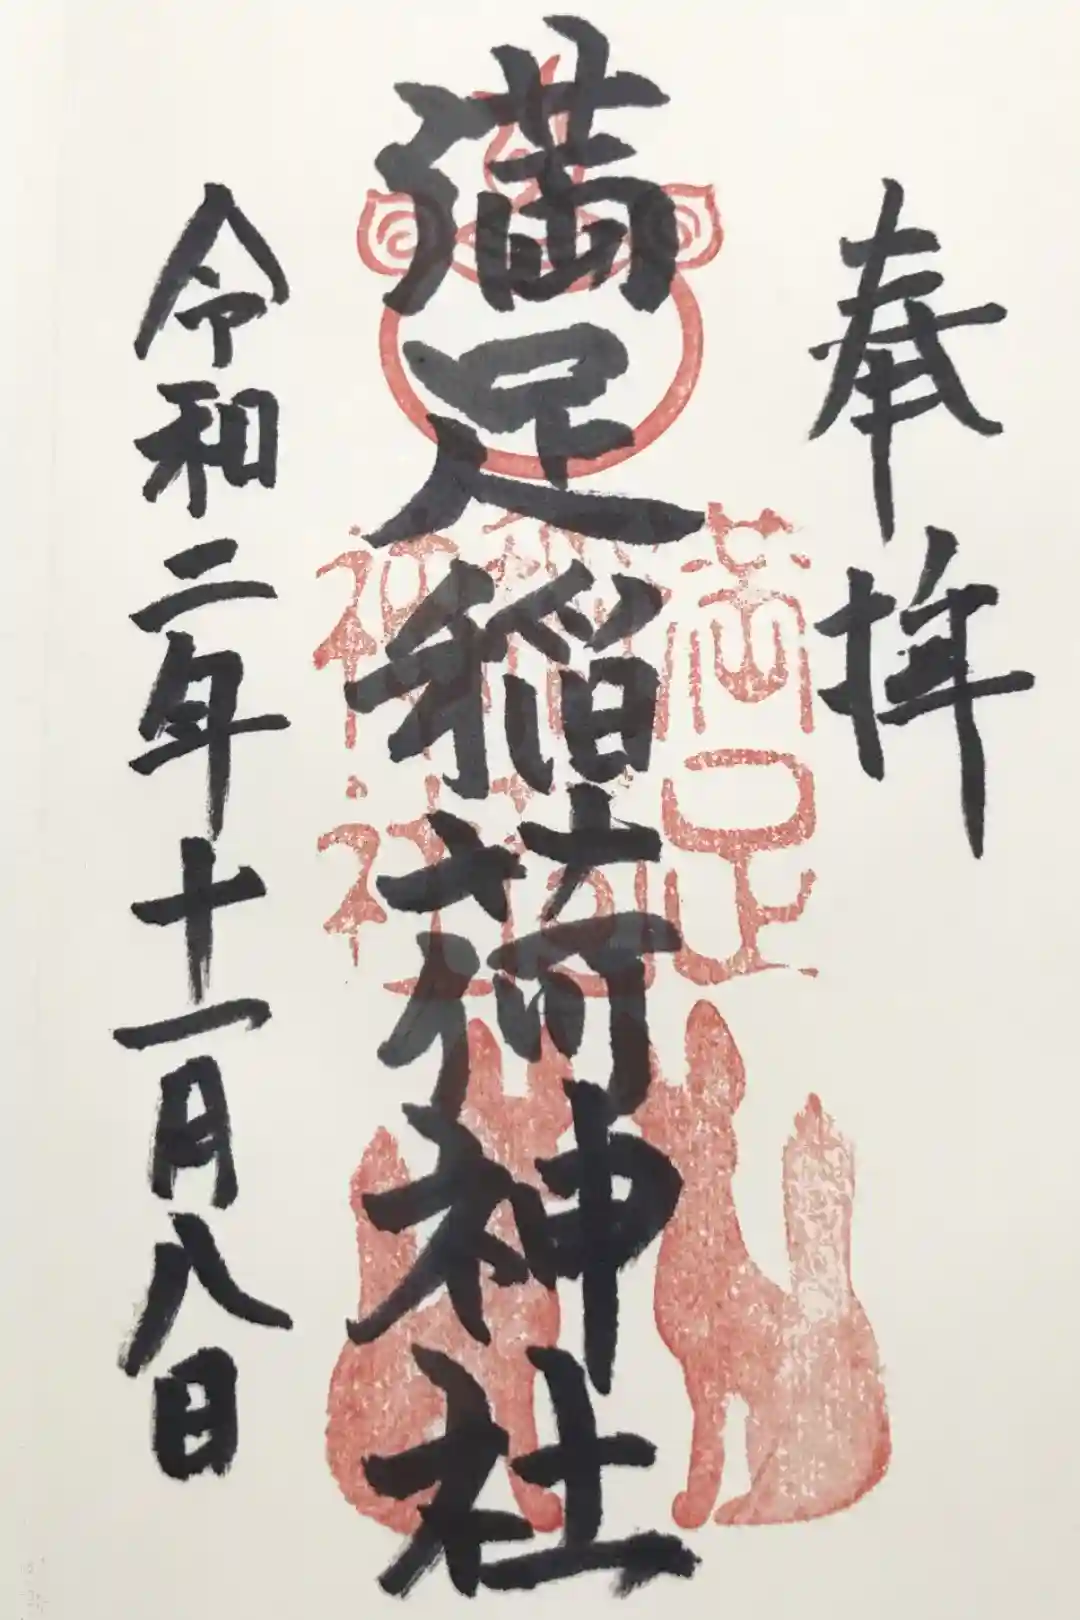 奉拝
満足稲荷神社
令和二年十一月八日